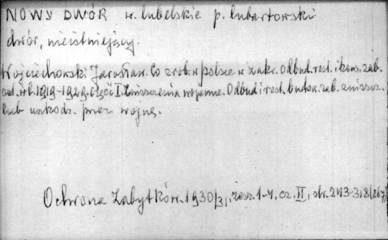 NOWY DWÓR w. lubelskie p. lubartowski
dwór, nieistniejący.
Wojciechowski Jarosław. Co zrob. w Polsce w zakr. odbud. rest. i kons. zab.
w l. 1919-1929. Część I. Zniszczenia wojenne. Odbud. i rest. budow. zab. zniszcz.
lub uszkodz. przez wojnę.
Ochrona Zabytków. 1930/31, zesz. 1-4, cz. II, str. 243-318